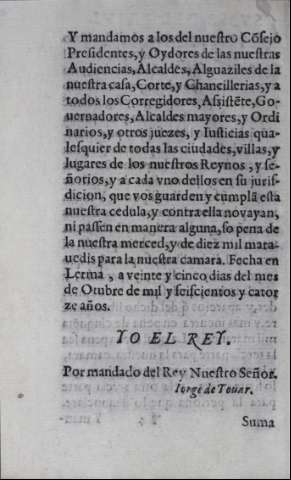 Y mandamos a los del nuestro Cõsejo
Presidentes, y Oydores de las nuestras
Audiencias, Alcaldes, Alguaziles de la
nuestra casa, Corte, y Chancillerias, y a
todos los Corregidores, Asistẽte, Go-
uernadores, Alcaldes mayores, y Ordi
narios, y otros juezes, y Iusticias qua-
lesquier de todas las ciudades, villas, y
lugares de los nuestros Reynos, y se-
ñorios, y a cada vno dellos en su juris-
dicion, que vos guarden y cumplã esta
nuestra cedula, y contra ella no vayan,
ni passen en manera alguna, so pena de
la nuestra merced, y de diez mil mara-
uedis para la nuestra camara. Fecha en
Lerma, a veinte y cinco dias del mes
de Otubre de mil y seiscientos y cator
ze años.
YO EL REY.
Por mandado del Rey Nuestro Señor.
Iorge de Touar.
Suma